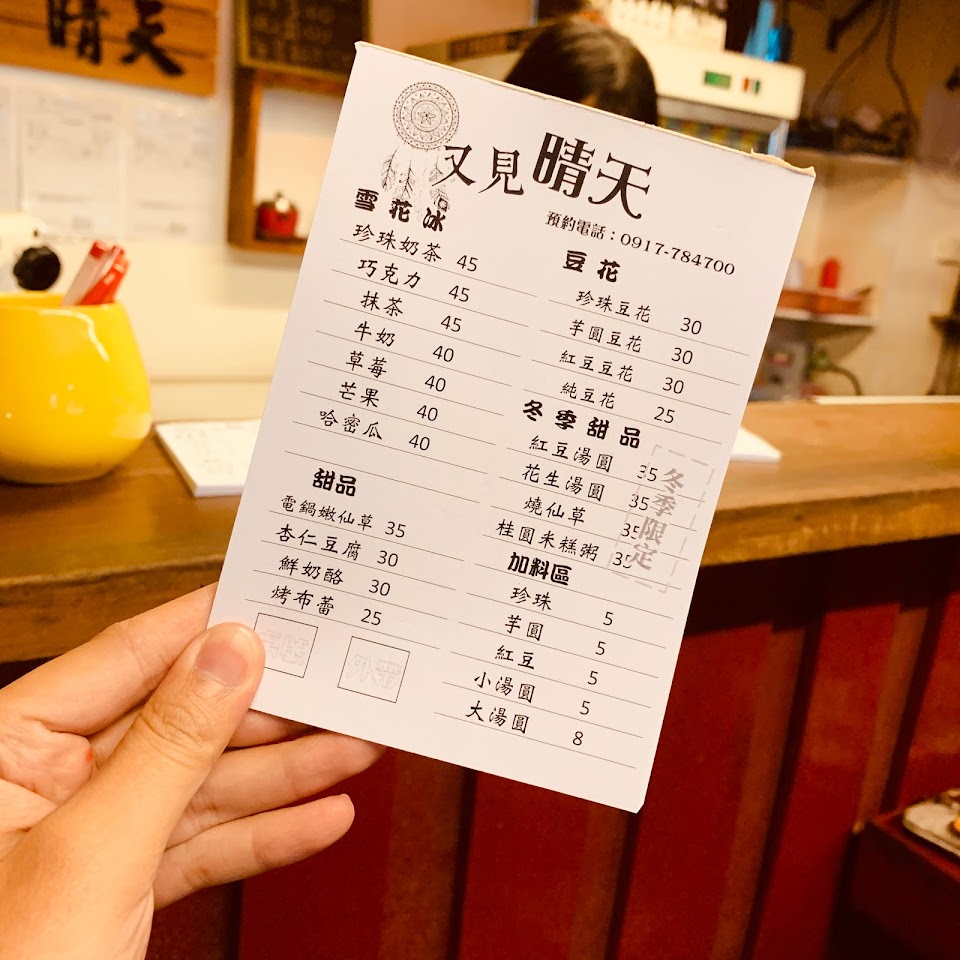 晴天
又見晴天
預約電話：0917-784700
雪花冰
珍珠奶茶 45
巧克力 45
抹茶 45
牛奶 40
草莓 40
芒果 40
哈密瓜 40
甜品
電鍋嫩仙草 35
杏仁豆腐 30
鮮奶酪 30
烤布蕾 25
內用
外帶
豆花
珍珠豆花 30
芋圓豆花 30
紅豆豆花 30
純豆花 25
冬季甜品
紅豆湯圓 35
花生湯圓 35
燒仙草 35
桂圓米糕粥 35
冬季限定
加料區
珍珠 5
芋圓 5
紅豆 5
小湯圓 5
大湯圓 8